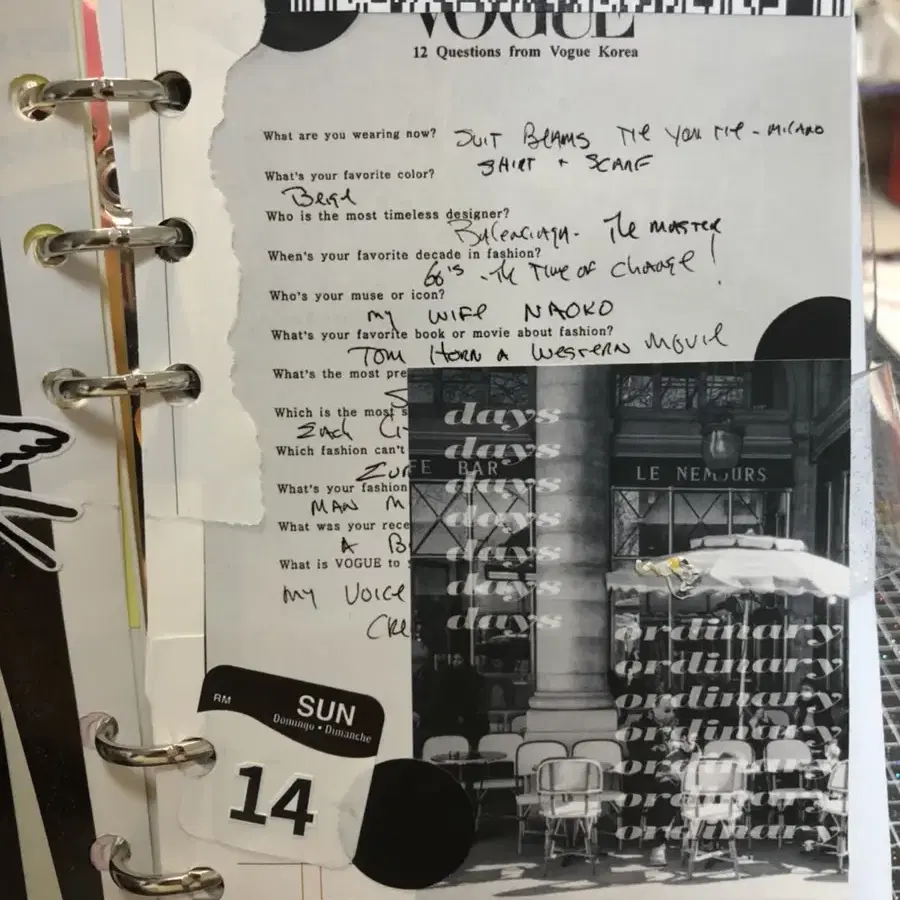 VOGUE
12 Questions from Vogue Korea
What are you wearing now? SUIT BEAMS TIE YOU TIE - MILANO
SHIRT + SCARF
What's your favorite color?
Beige
Who is the most timeless designer?
BALENCIAGA. THE MASTER
When's your favorite decade in fashion?
60's - THE TIME OF CHANGE!
Who's your muse or icon?
MY WIFE NAOKO
What's your favorite book or movie about fashion?
TOM HORN A WESTERN MOVIE
What's the most pre
Which is the most s
EACH CI
Which fashion can't
What's your fashion
MAN M
What was your rece
A B
What is VOGUE to
MY VOICE
CRE
days
days
days
days
days
days
days
FE BAR
LE NEMOURS
ordinary
ordinary
ordinary
ordinary
ordinary
ordinary
ordinary
RM
SUN
Domingo • Dimanche
14